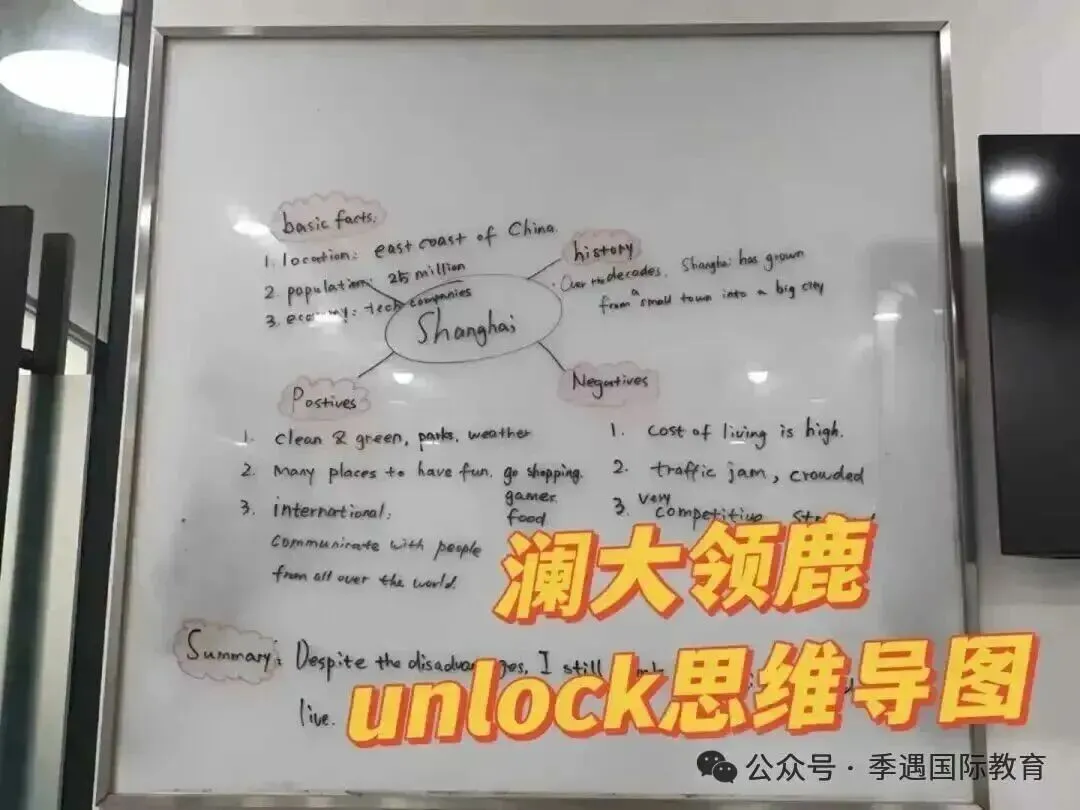 basic facts.
1. location: east coast of China.
2. population: 25 million
3. economy: tech companies
history
· Over the decades, Shanghai has grown
from a small town into a big city
Shanghai
Postives
1. clean & green, parks, weather
2. Many places to have fun. go shopping.
games
food
3. international:
communicate with people
from all over the world.
Negatives
1. cost of living is high.
2. traffic jam, crowded
3. very competitive
Summary: Despite the disadvantages, I still
live.
澜大领鹿
unlock思维导图
公众号·季遇国际教育